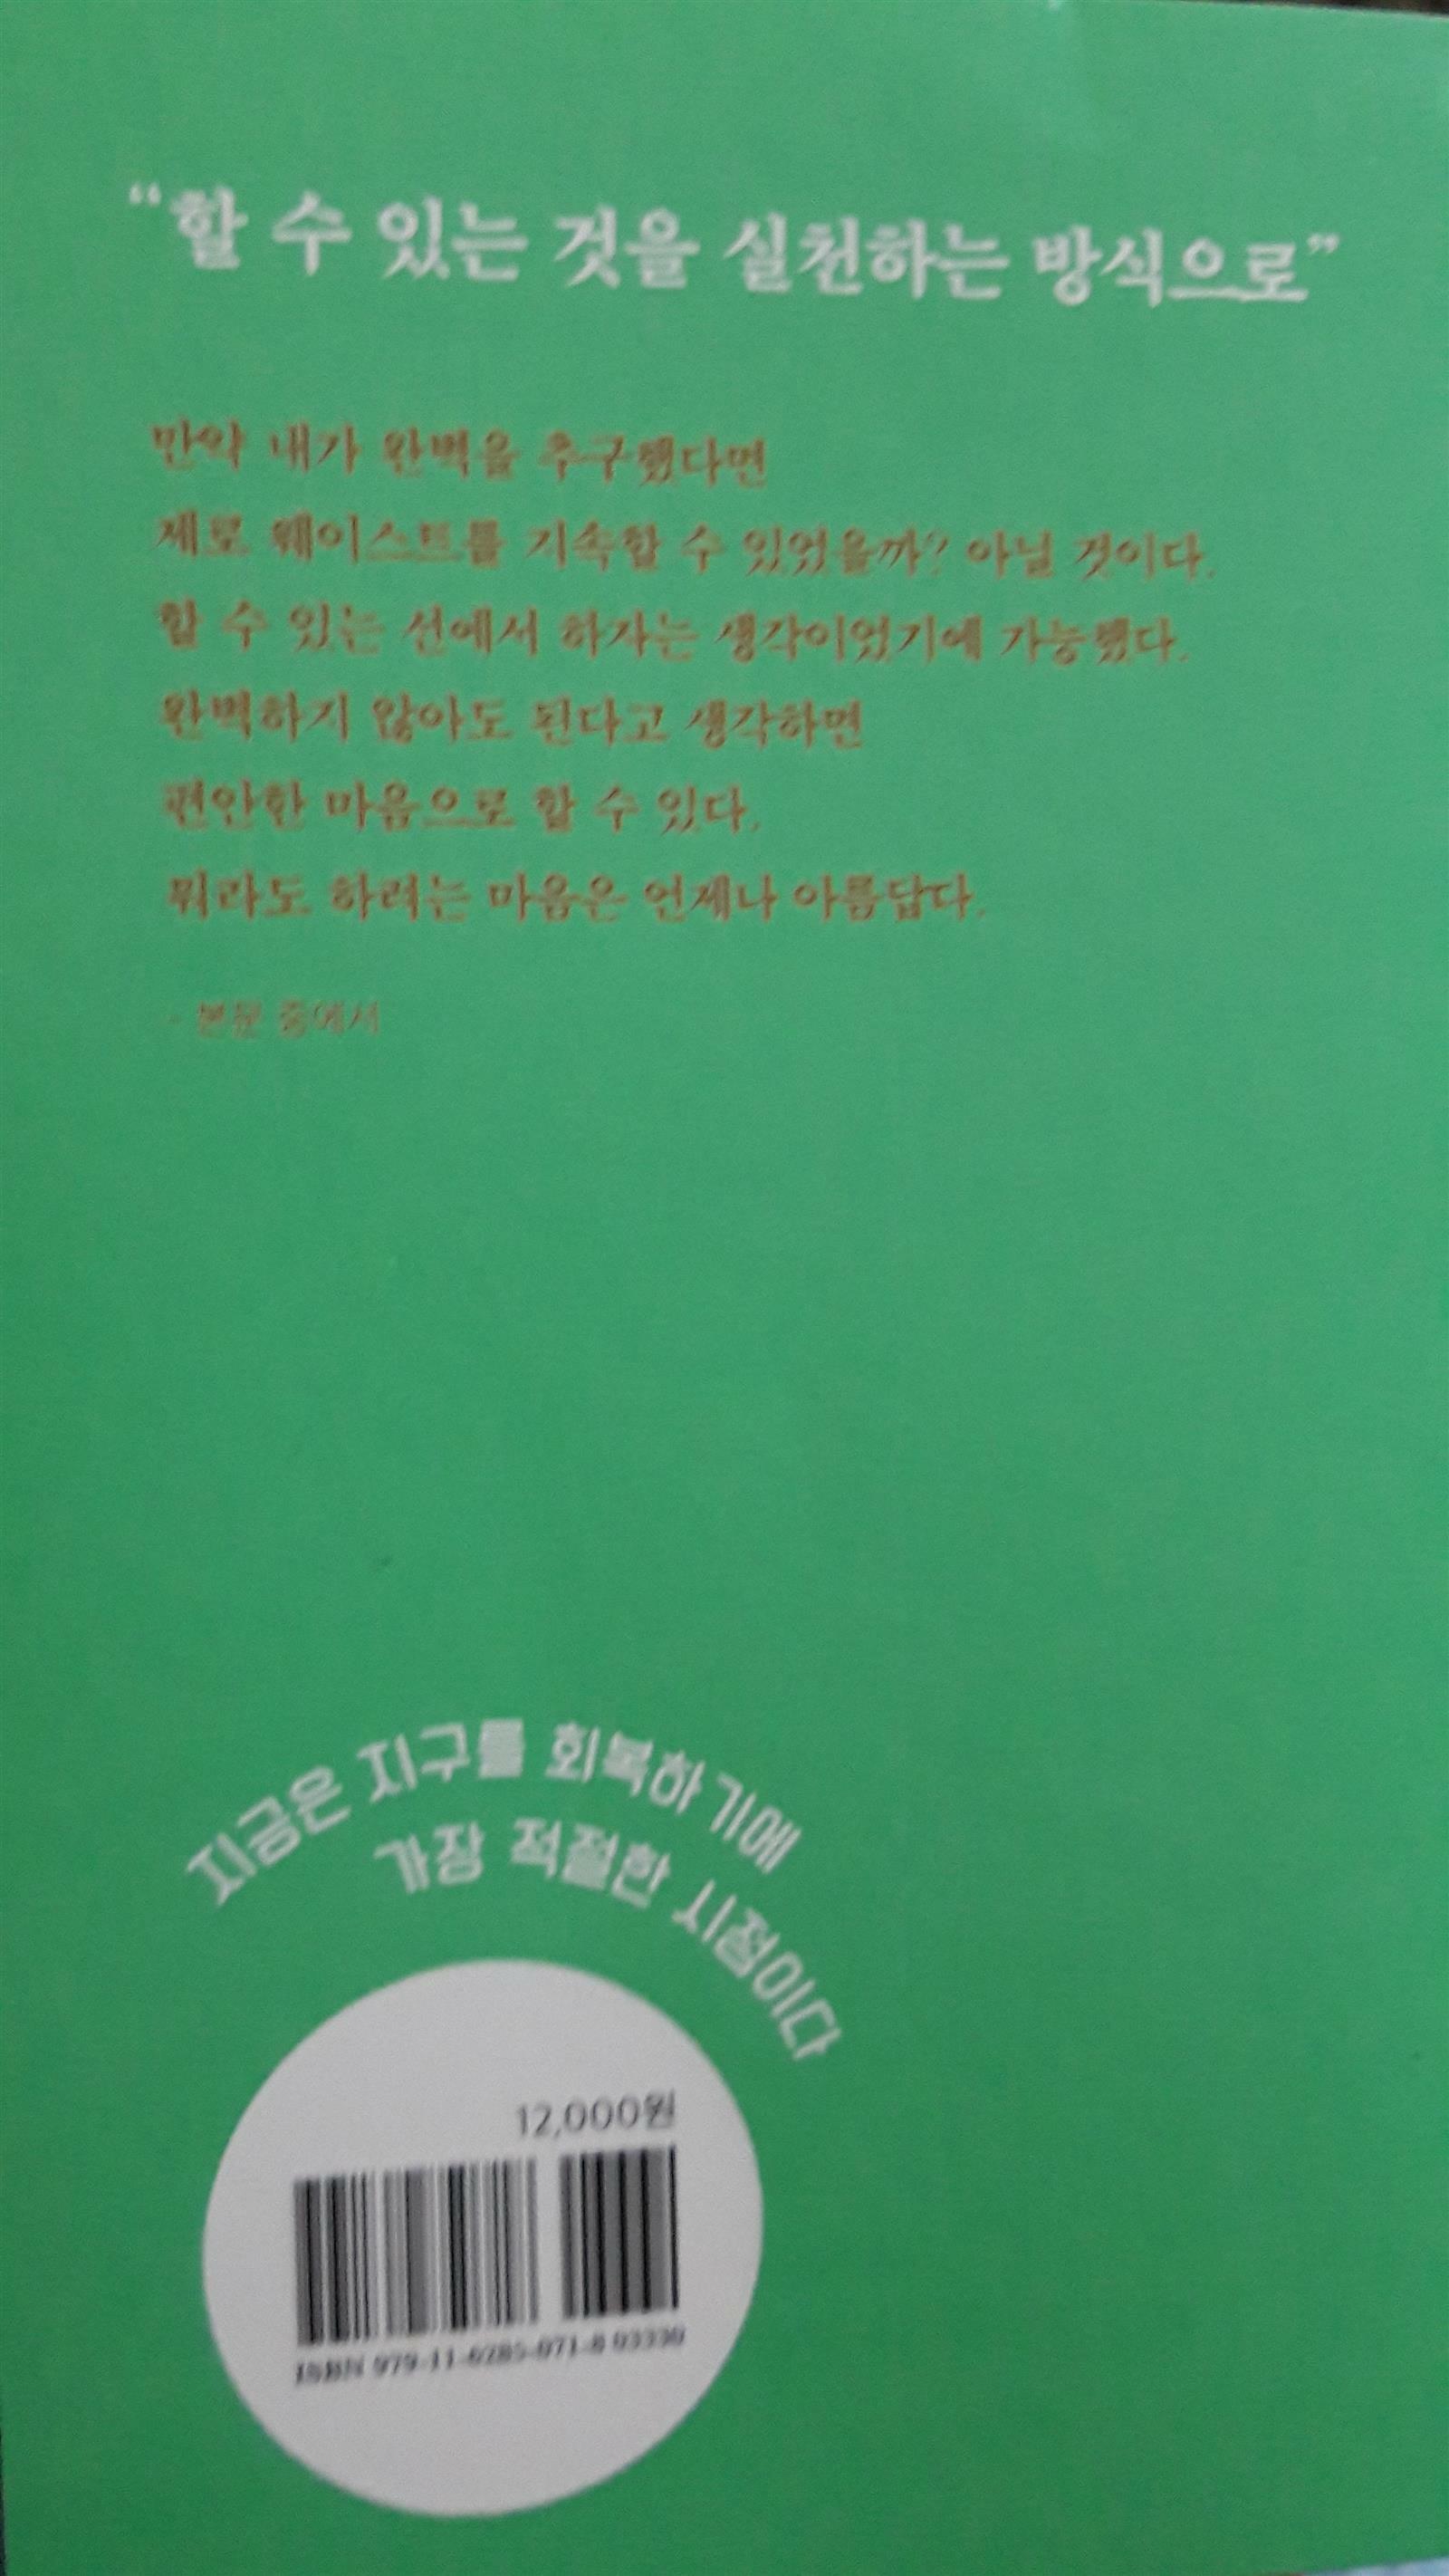 “할 수 있는 것을 실천하는 방식으로”
만약 내가 완벽을 추구했다면
제로 웨이스트를 지속할 수 있었을까? 아닐 것이다.
할 수 있는 선에서 하자는 생각이었기에 가능했다.
완벽하지 않아도 된다고 생각하면
편안한 마음으로 할 수 있다.
뭐라도 하려는 마음은 언제나 아름답다.
- 본문 중에서
지금은 지구를 회복하기에
가장 적절한 시점이다
12,000원
ISBN 979-11-6285-071-8 03330